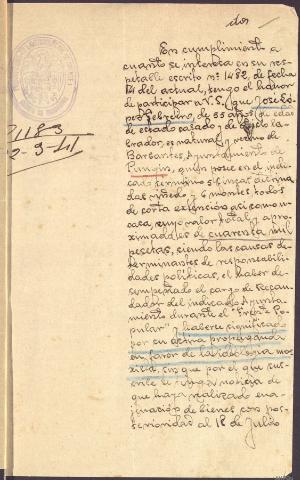 dos
En cumplimiento a
cuanto se interesa en su res-
petable escrito nº 1482, de fecha
14 del actual, tengo el honor
de participar a V.S. que José
Febrero, de 55 años de edad
de estado casado y de oficio la-
brador, es natural y vecino de
Barbantes, Ayuntamiento de
Pungin, quien posee en el indi-
cado termino 5 fincas destina-
das viñedo y 6 montes todos
de corta extensión asi como una
casa, cuyo valor total y apro-
ximado es de cuarenta mil
pesetas, siendo las causas de-
terminantes de responsabili-
dades politicas, el haber de-
sempeñado el cargo de Recau-
dador del indicado Ayunta-
miento durante el "Frente Po-
pular" y haberse significado
por su activa propaganda
en favor de la ideologia mar-
xista, sin que por el que sus-
cribe se tenga noticia de
que haya realizado ena-
jenación de bienes con pos-
terioridad al 18 de Julio